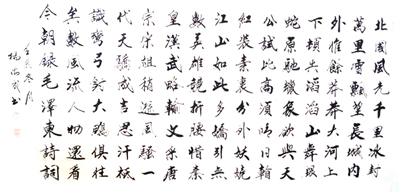 北國風光千里冰封
萬里雪飄望長城内
外惟餘莽莽大河上
下頓失滔滔山舞銀
蛇原馳蠟象欲與天
公試比高須晴日看
紅裝素裹分外妖嬈
江山如此多嬌引無
數英雄競折腰惜秦
皇漢武略輸文采唐
宗宋祖稍遜風騷一
代天驕成吉思汗祇
識彎弓射大雕俱往
矣數風流人物還看
今朝錄毛澤東詩詞
冬月
楊書